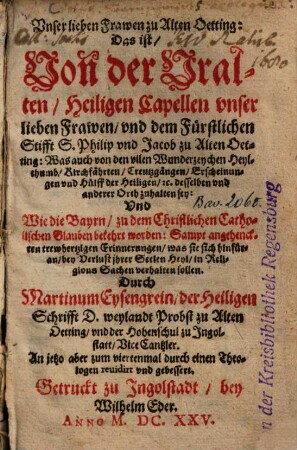 Vnser lieben Frawen zu Alten Oetting:
Das ist/
Von der Vral-
ten/ Heiligen Capellen vnser
lieben Frawen/ vnd dem Fürstlichen
Stifft S. Philip vnd Jacob zu Alten Oet-
ting: Was auch von den vilen Wunderzeychen Heyl-
thumb/ Kirchfährten/ Creutzgängen/ Erscheinun-
gen vnd Hülff der Heiligen/ ꝛc. desselben vnd
anderer Orth zuhalten sey:
Vnd
Bav. 2060.
Wie die Bayrn/ zu dem Christlichen Catho-
lischen Glauben bekehrt worden: Sampt angehenck-
ten trewhertzigen Erinnerungen/ was sie sich hinfür-
an/ bey Verlust jhrer Seelen Heyl/ in Reli-
gions Sachen verhalten sollen.
Durch
Martinum Eysengrein/ der Heiligen
Schrifft D. weylandt Probst zu Alten
Oetting/ vnd der Hohenschul zu Ingol-
statt/ Vice Cantzler.
An jetzo aber zum viertenmal durch einen Theo-
logen reuidirt vnd gebessert.
Getruckt zu Ingolstadt/ bey
Wilhelm Eder.
ANNO M. DC. XXV.
n der Kreisbibliothek Regensburg